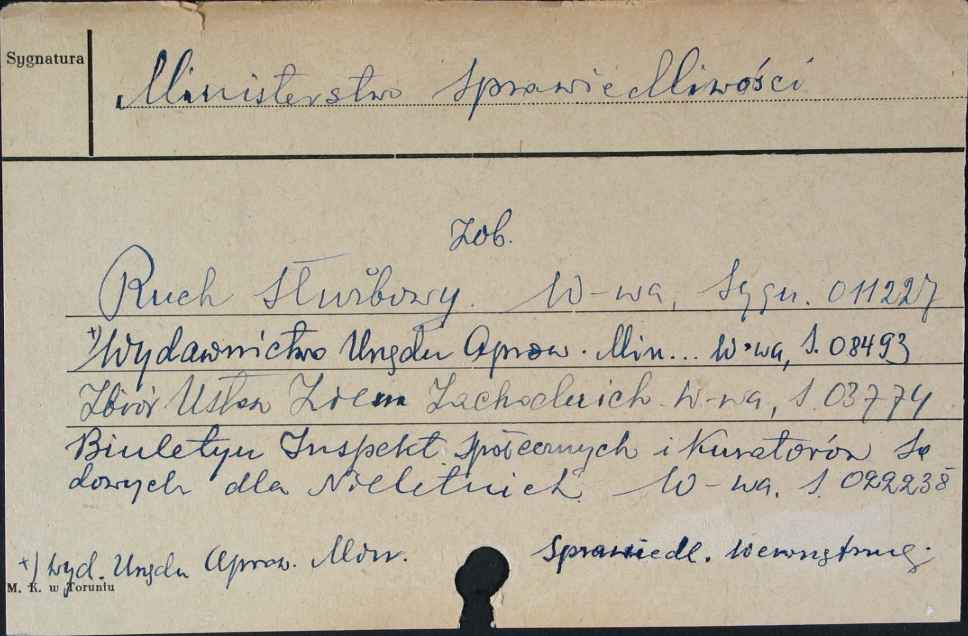 Sygnatura
Ministerstwo Sprawiedliwości
Zob.
Ruch Służbowy. W-wa, Sygn. 011227
+) Wydawnictwo Urzędu Apraw. Min... W-wa, S. 08493
Zbiór Ustaw Ziem Zachodnich W-wa, S. 03774
Biuletyn Inspekt Społecznych i Kuratorów Są
dowych dla Nieletnich. W-wa. S. 022238
+) Wyd. Urzędu Apraw. Min. Sprawiedl. Wewnętrzneg.
M. K. w Toruniu